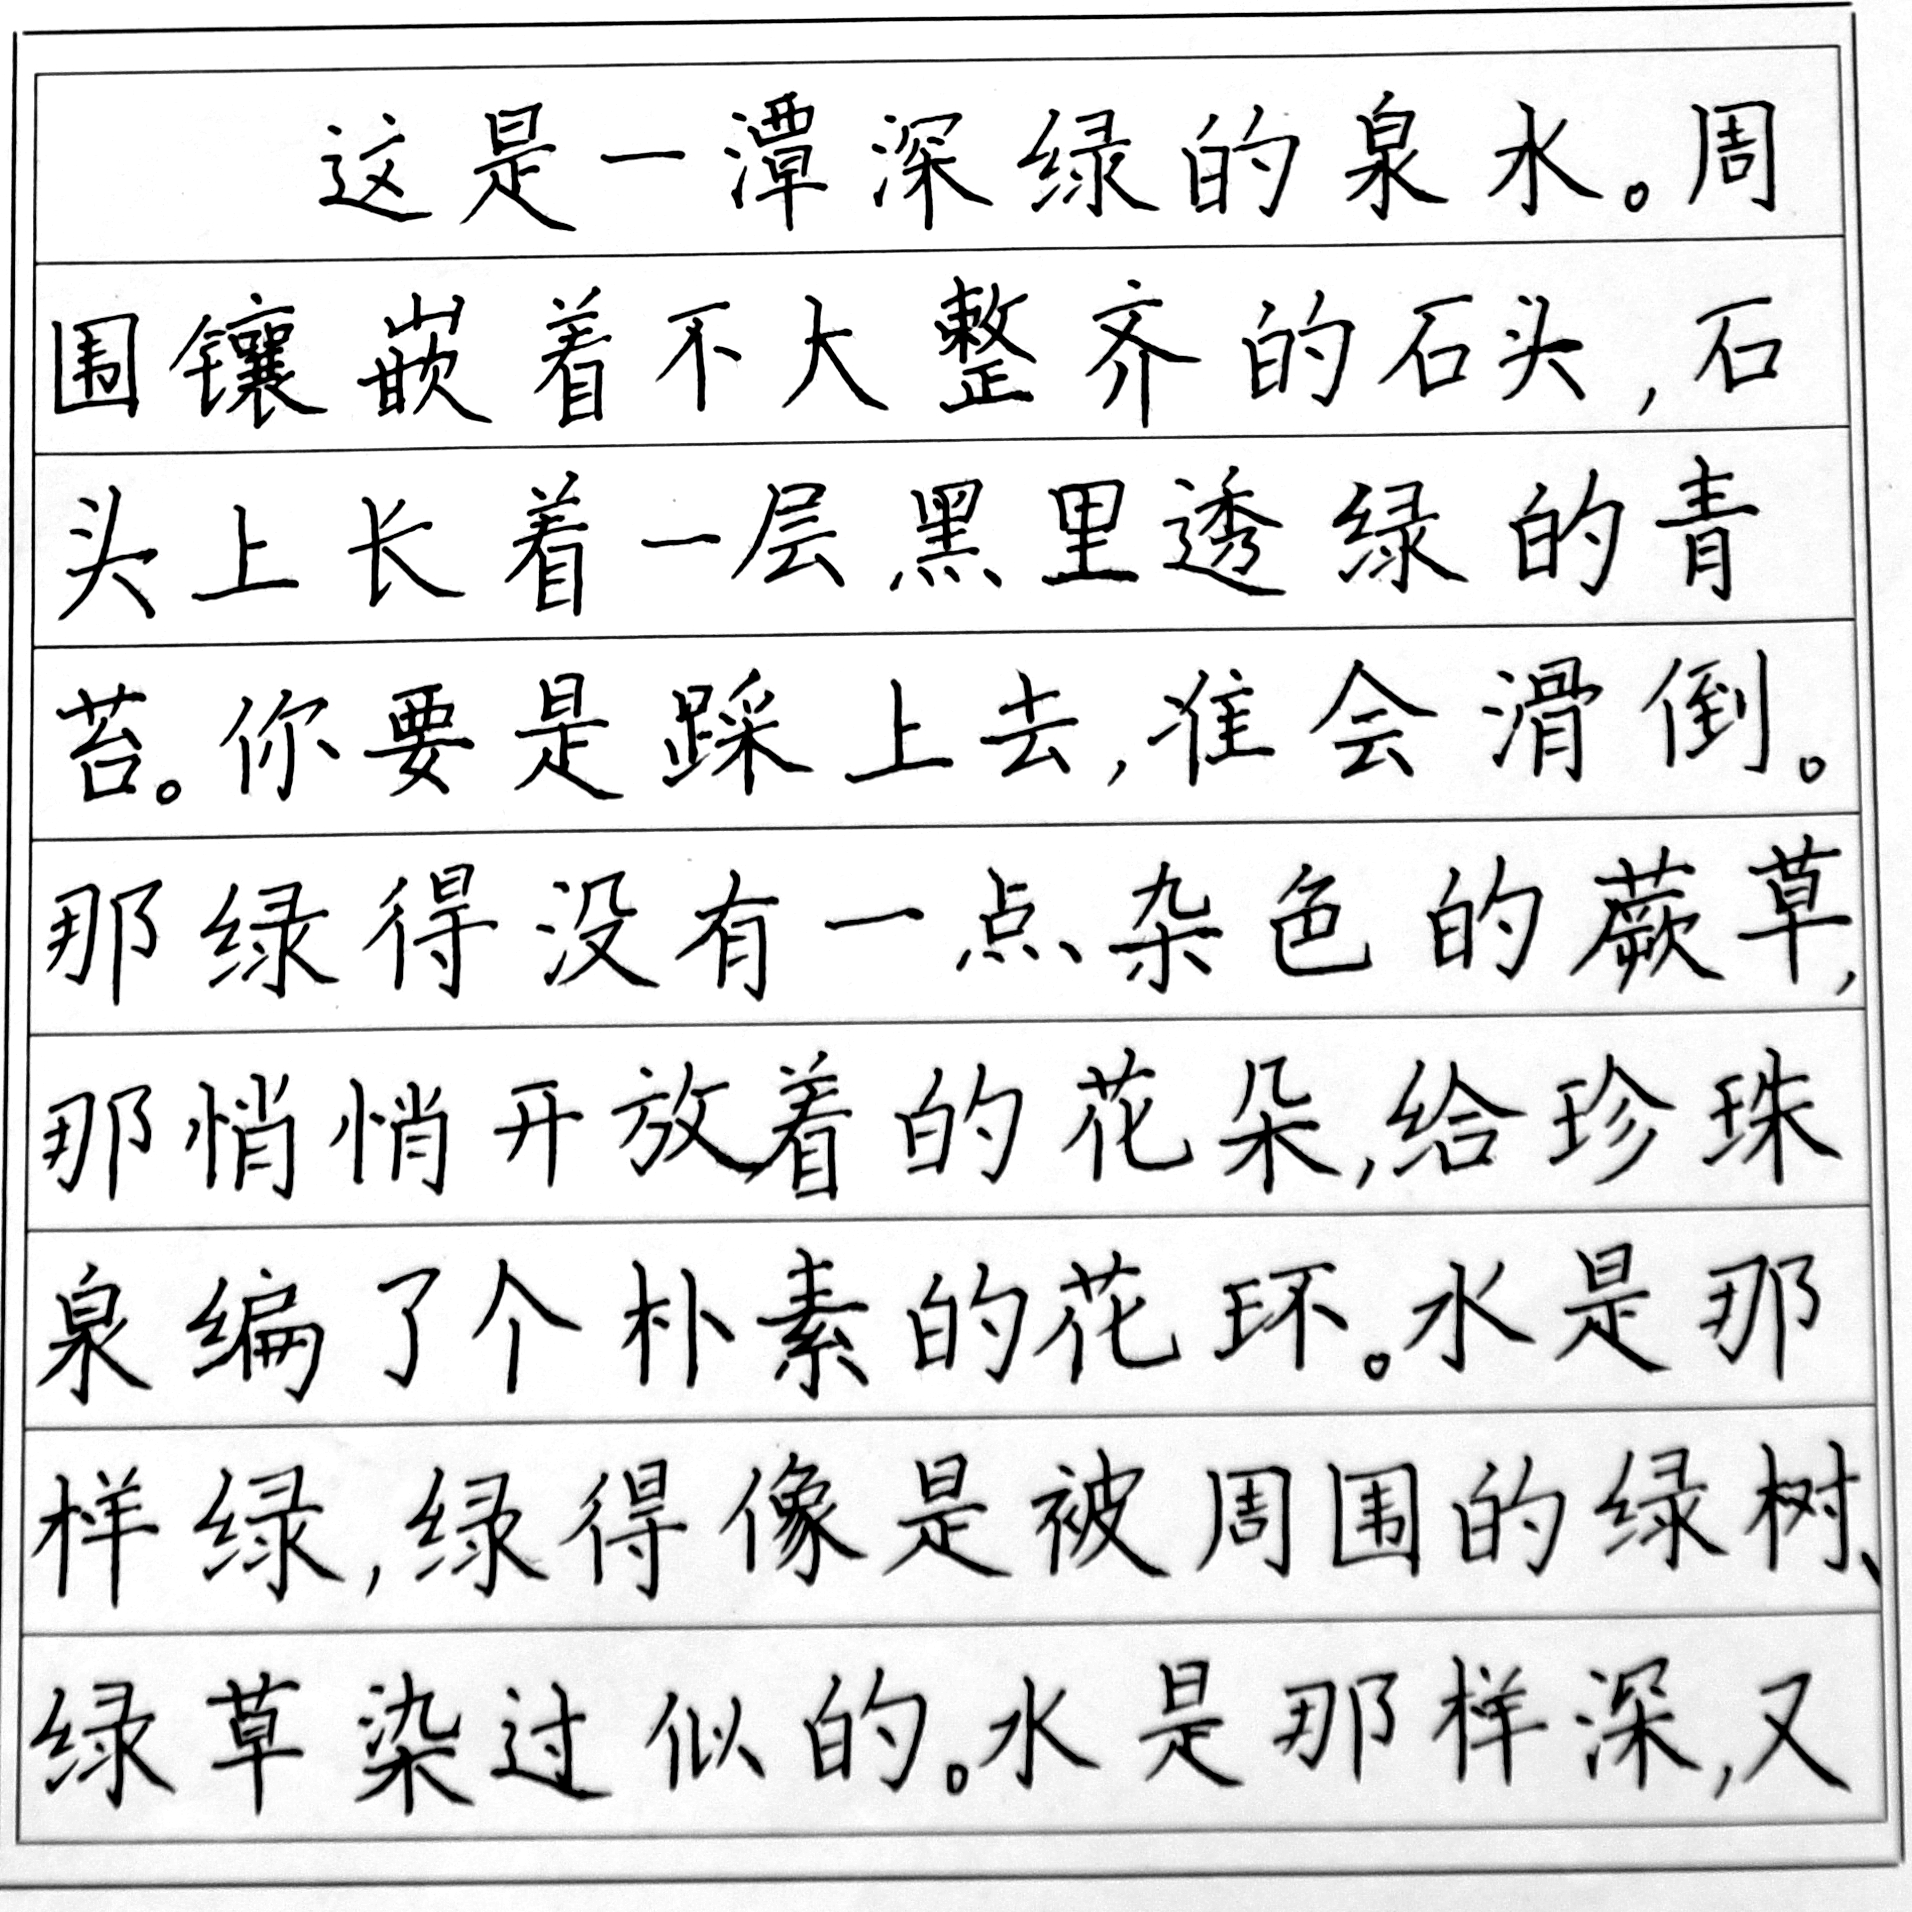 这是一潭深绿的泉水。周
围镶嵌着不大整齐的石头,石
头上长着一层黑里透绿的青
苔。你要是踩上去,准会滑倒。
那绿得没有一点杂色的蕨草,
那悄悄开放着的花朵,给珍珠
泉编了个朴素的花环。水是那
样绿,绿得像是被周围的绿树、
绿草染过似的。水是那样深,又